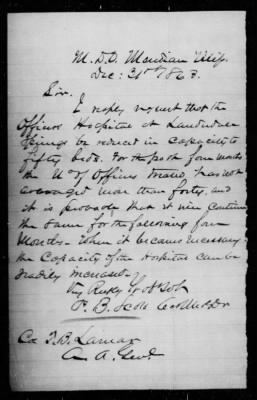 M. D. D. Meridian Miss.
Dec: 31st 1863.
Sir.
I resply request that the
Officers Hospital at Lauderdale
Springs be reduced in capacity to
fifty beds. For the past four months
the N of Officers treated, has not
averaged more than forty, and
it is probable that it will continue
the same for the following four
Months. When it becomes necessary,
the Capacity of the Hospital can be
readily increased.
Very Resply Yr Obt Sobt
P. B. Scott
Col T. B. Lamar
A. A. Genl